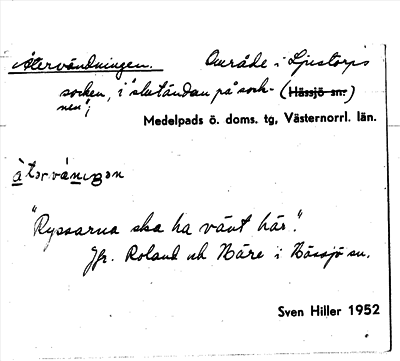 Återvändningen. Område i Ljustorps
socken, i "slutändan på sock- (Hässjö sn.)
nen";
Medelpads ö. doms. tg, Västernorrl. län.
"Ryssarna ska ha vänt här".
Jfr. Roland och Näre i Hässjö sn.
Sven Hiller 1952